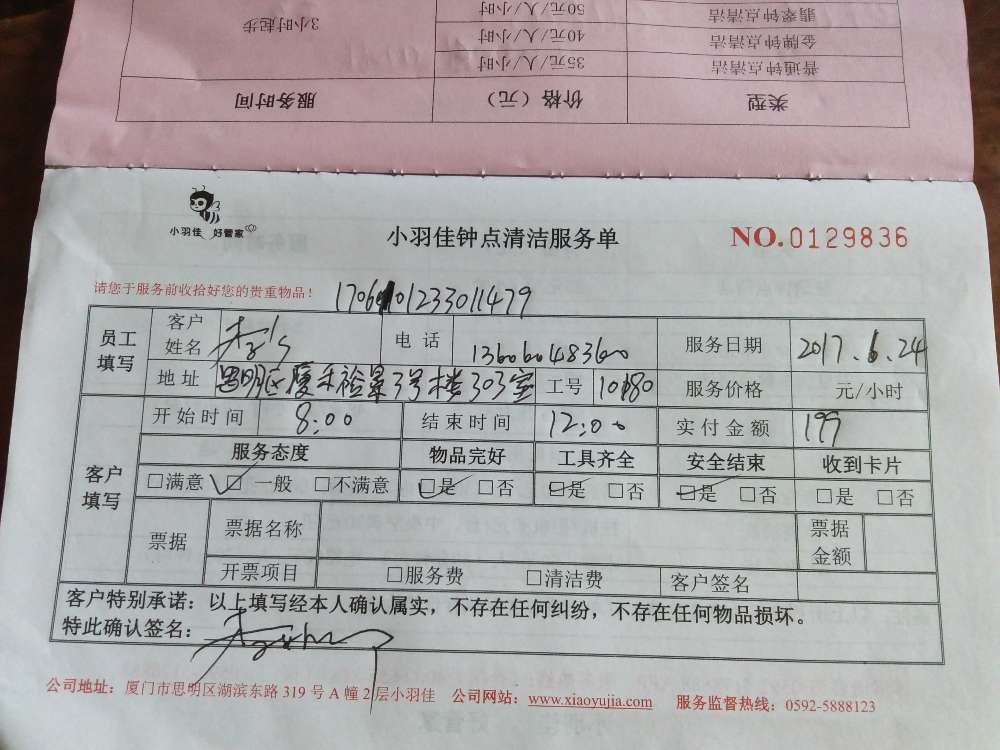 3小时起步
50元/人/小时
翡翠钟点清洁
40元/人/小时
金牌钟点清洁
35元/人/小时
普通钟点清洁
服务时间 价格（元） 类型
小羽佳 好管家
小羽佳钟点清洁服务单
NO.0129836
请您于服务前收拾好您的贵重物品！
员工填写 客户姓名 电话 13606048360 服务日期 2017.6.24
地址 思明区厦禾裕景3号楼303室 工号 10180 服务价格 元/小时
客户填写 开始时间 8:00 结束时间 12:00 实付金额 199
服务态度 物品完好 工具齐全 安全结束 收到卡片
□满意 □一般 □不满意 □是 □否 □是 □否 □是 □否 □是 □否
票据 票据名称 票据金额
开票项目 □服务费 □清洁费 客户签名
客户特别承诺：以上填写经本人确认属实，不存在任何纠纷，不存在任何物品损坏。
特此确认签名：
公司地址：厦门市思明区湖滨东路 319 号 A 幢 2 层小羽佳 公司网站：www.xiaoyujia.com 服务监督热线：0592-5888123